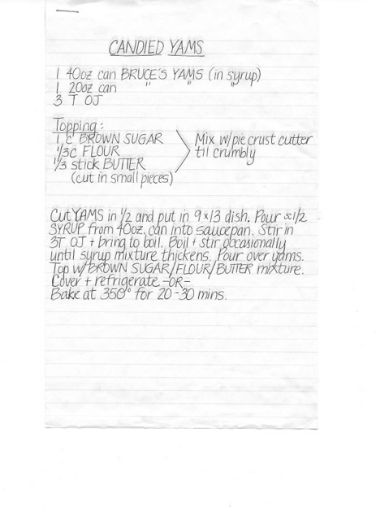 CANDIED YAMS
1 40oz can BRUCE'S YAMS (in syrup)
1 20oz can " " "
3 T OJ
Topping:
1 c BROWN SUGAR
1/3c FLOUR
1/3 stick BUTTER
(cut in small pieces)
Mix w/pie crust cutter
til crumbly
Cut YAMS in 1/2 and put in 9x13 dish. Pour ≈1/2
SYRUP from 40oz can into saucepan. Stir in
3T OJ + bring to boil. Boil + stir occasionally
until syrup mixture thickens. Pour over yams.
Top w/BROWN SUGAR/FLOUR/BUTTER mixture.
Cover + refrigerate -OR-
Bake at 350° for 20-30 mins.